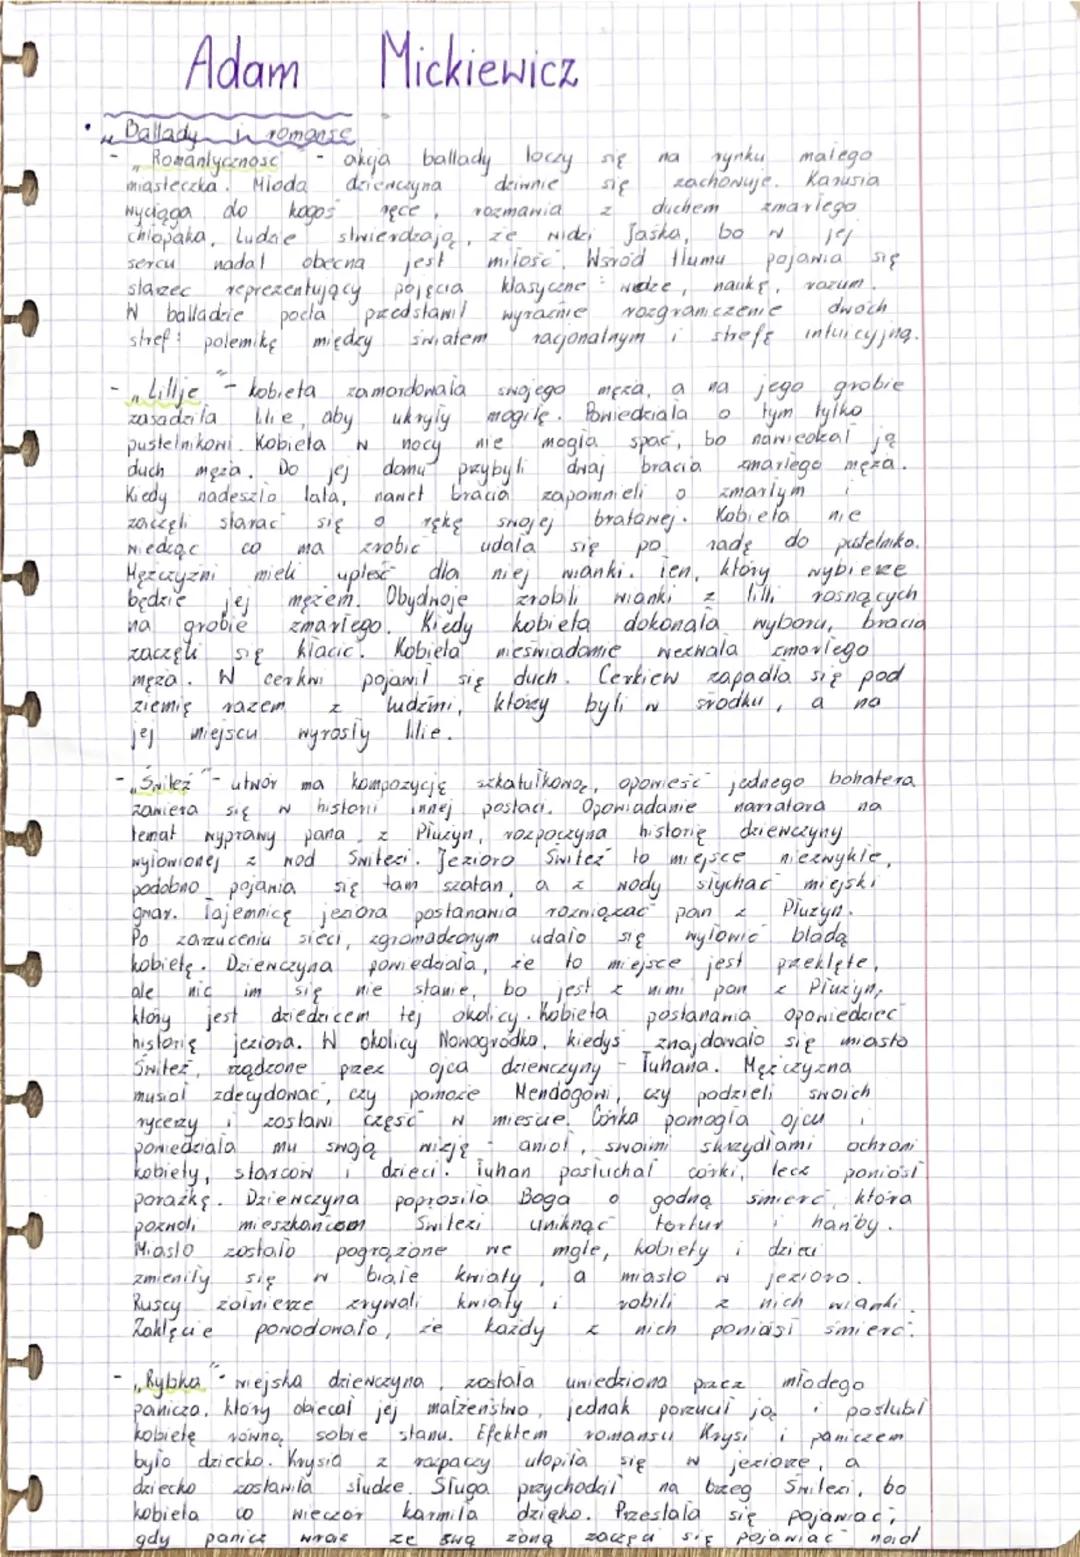 Adam Mickiewicz
• „Ballady i romanse
- „Romantyczność - akcja ballady toczy się na rynku małego
miasteczka. Młoda dziewczyna dziwnie się zachowuje. Karusia
wyciąga do kogoś ręce, rozmawia z duchem zmarłego
chłopaka. Ludzie stwierdzają, że widzi Jaśka, bo w jej
sercu nadal obecna jest miłość. Wśród tłumu pojawia się
starzec reprezentujący pojęcia klasyczne: wiedzę, naukę, rozum.
W balladzie poeta przedstawił wyraźnie rozgraniczenie dwóch
stref: polemikę między światem racjonalnym i strefę intuicyjną.
- „Lillje" - kobieta zamordowała swojego męża, a na jego grobie
zasadziła lilie, aby ukryły mogiłę. Powiedziała o tym tylko
pustelnikowi. Kobieta w nocy nie mogła spać, bo nawiedzał ją
duch męża. Do jej domu przybyli dwaj bracia zmarłego męża.
Kiedy nadeszło lata, nawet bracia zapomnieli o zmarłym i
zaczęli starać się o rękę swojej bratowej. Kobieta nie
wiedząc co ma zrobić udała się po radę do pustelnika.
Mężczyźni mieli upleść dla niej wianki. Ten, który wybierze
będzie jej mężem. Obydwoje zrobili wianki z lilli rosnących
na grobie zmarłego. Kiedy kobieta dokonała wyboru, bracia
zaczęli się kłócić. Kobieta nieświadomie wezwała zmarłego
męża. W cerkwi pojawił się duch. Cerkiew zapadła się pod
ziemię razem z ludźmi, którzy byli w środku, a na
jej miejscu wyrosły lilie.
- „Świteź" - utwór ma kompozycję szkatułkową, opowieść jednego bohatera
zawiera się w historii innej postaci. Opowiadanie narratora na
temat wyprawy pana z Płużyn, rozpoczyna historię dziewczyny
wyłowionej z wod Świtezi. Jezioro Świteź to miejsce niezwykłe,
podobno pojawia się tam szatan, a z wody słychać miejski
gwar. Tajemnicę jeziora postanawia rozwiązać pan z Płużyn.
Po zarzuceniu sieci, zgromadzonym udało się wyłowić bladą
kobietę. Dziewczyna powiedziała, że to miejsce jest przeklęte,
ale nic im się nie stanie, bo jest z nimi pan z Płużyn,
który jest dziedzicem tej okolicy. Kobieta postanawia opowiedzieć
historię jeziora. W okolicy Nowogródka, kiedyś znajdowało się miasto
Świteź, rządzone przez ojca dziewczyny - Tuhana. Mężczyzna
musiał zdecydować, czy pomoże Mendogowi, czy podzieli swoich
rycerzy i zostawi część w mieście. Córka pomogła ojcu i
powiedziała mu swoją wizję - anioł, swoimi skrzydłami ochroni
kobiety, starców i dzieci. Tuhan posłuchał córki, lecz poniósł
porażkę. Dziewczyna poprosiła Boga o godną śmierć, która
pozwoli mieszkańcom Świtezi uniknąć tortur i hańby.
Miasto zostało pogrążone we mgle, kobiety i dzieci
zmieniły się w białe kwiaty, a miasto w jezioro.
Ruscy żołnierze zrywali kwiaty i robili z nich wianki.
Zaklęcie powodowało, że każdy z nich poniósł śmierć.
- „Rybka" - wiejska dziewczyna, została uwiedziona przez młodego
panicza, który obiecał jej małżeństwo, jednak porzucił ją i poślubił
kobietę równą sobie stanu. Efektem romansu Krysi i paniczem
było dziecko. Krysia z rozpaczy utopiła się w jeziorze, a
dziecko zostawiła słudze. Sługa przychodził na brzeg Świtezi, bo
kobieta co wieczór karmiła dziecko. Przestała się pojawiać,
gdy panicz wraz ze swą żoną zaczęli się pojawiać nad